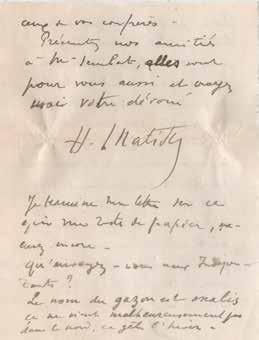 ceux de vos confrères –
Présentez nos amitiés
à Mr Sembat, elles sont
pour vous aussi et croyez
moi votre dévoué
H. Matisse
Je termine ma lettre sur ce
qui me reste de papier,
encore –
qu'envoyez-vous aux Indépen-
dants ?
Le nom du gazon est
ce ne vient malheureusement pas
dans le nord, ça gèle l'hiver –